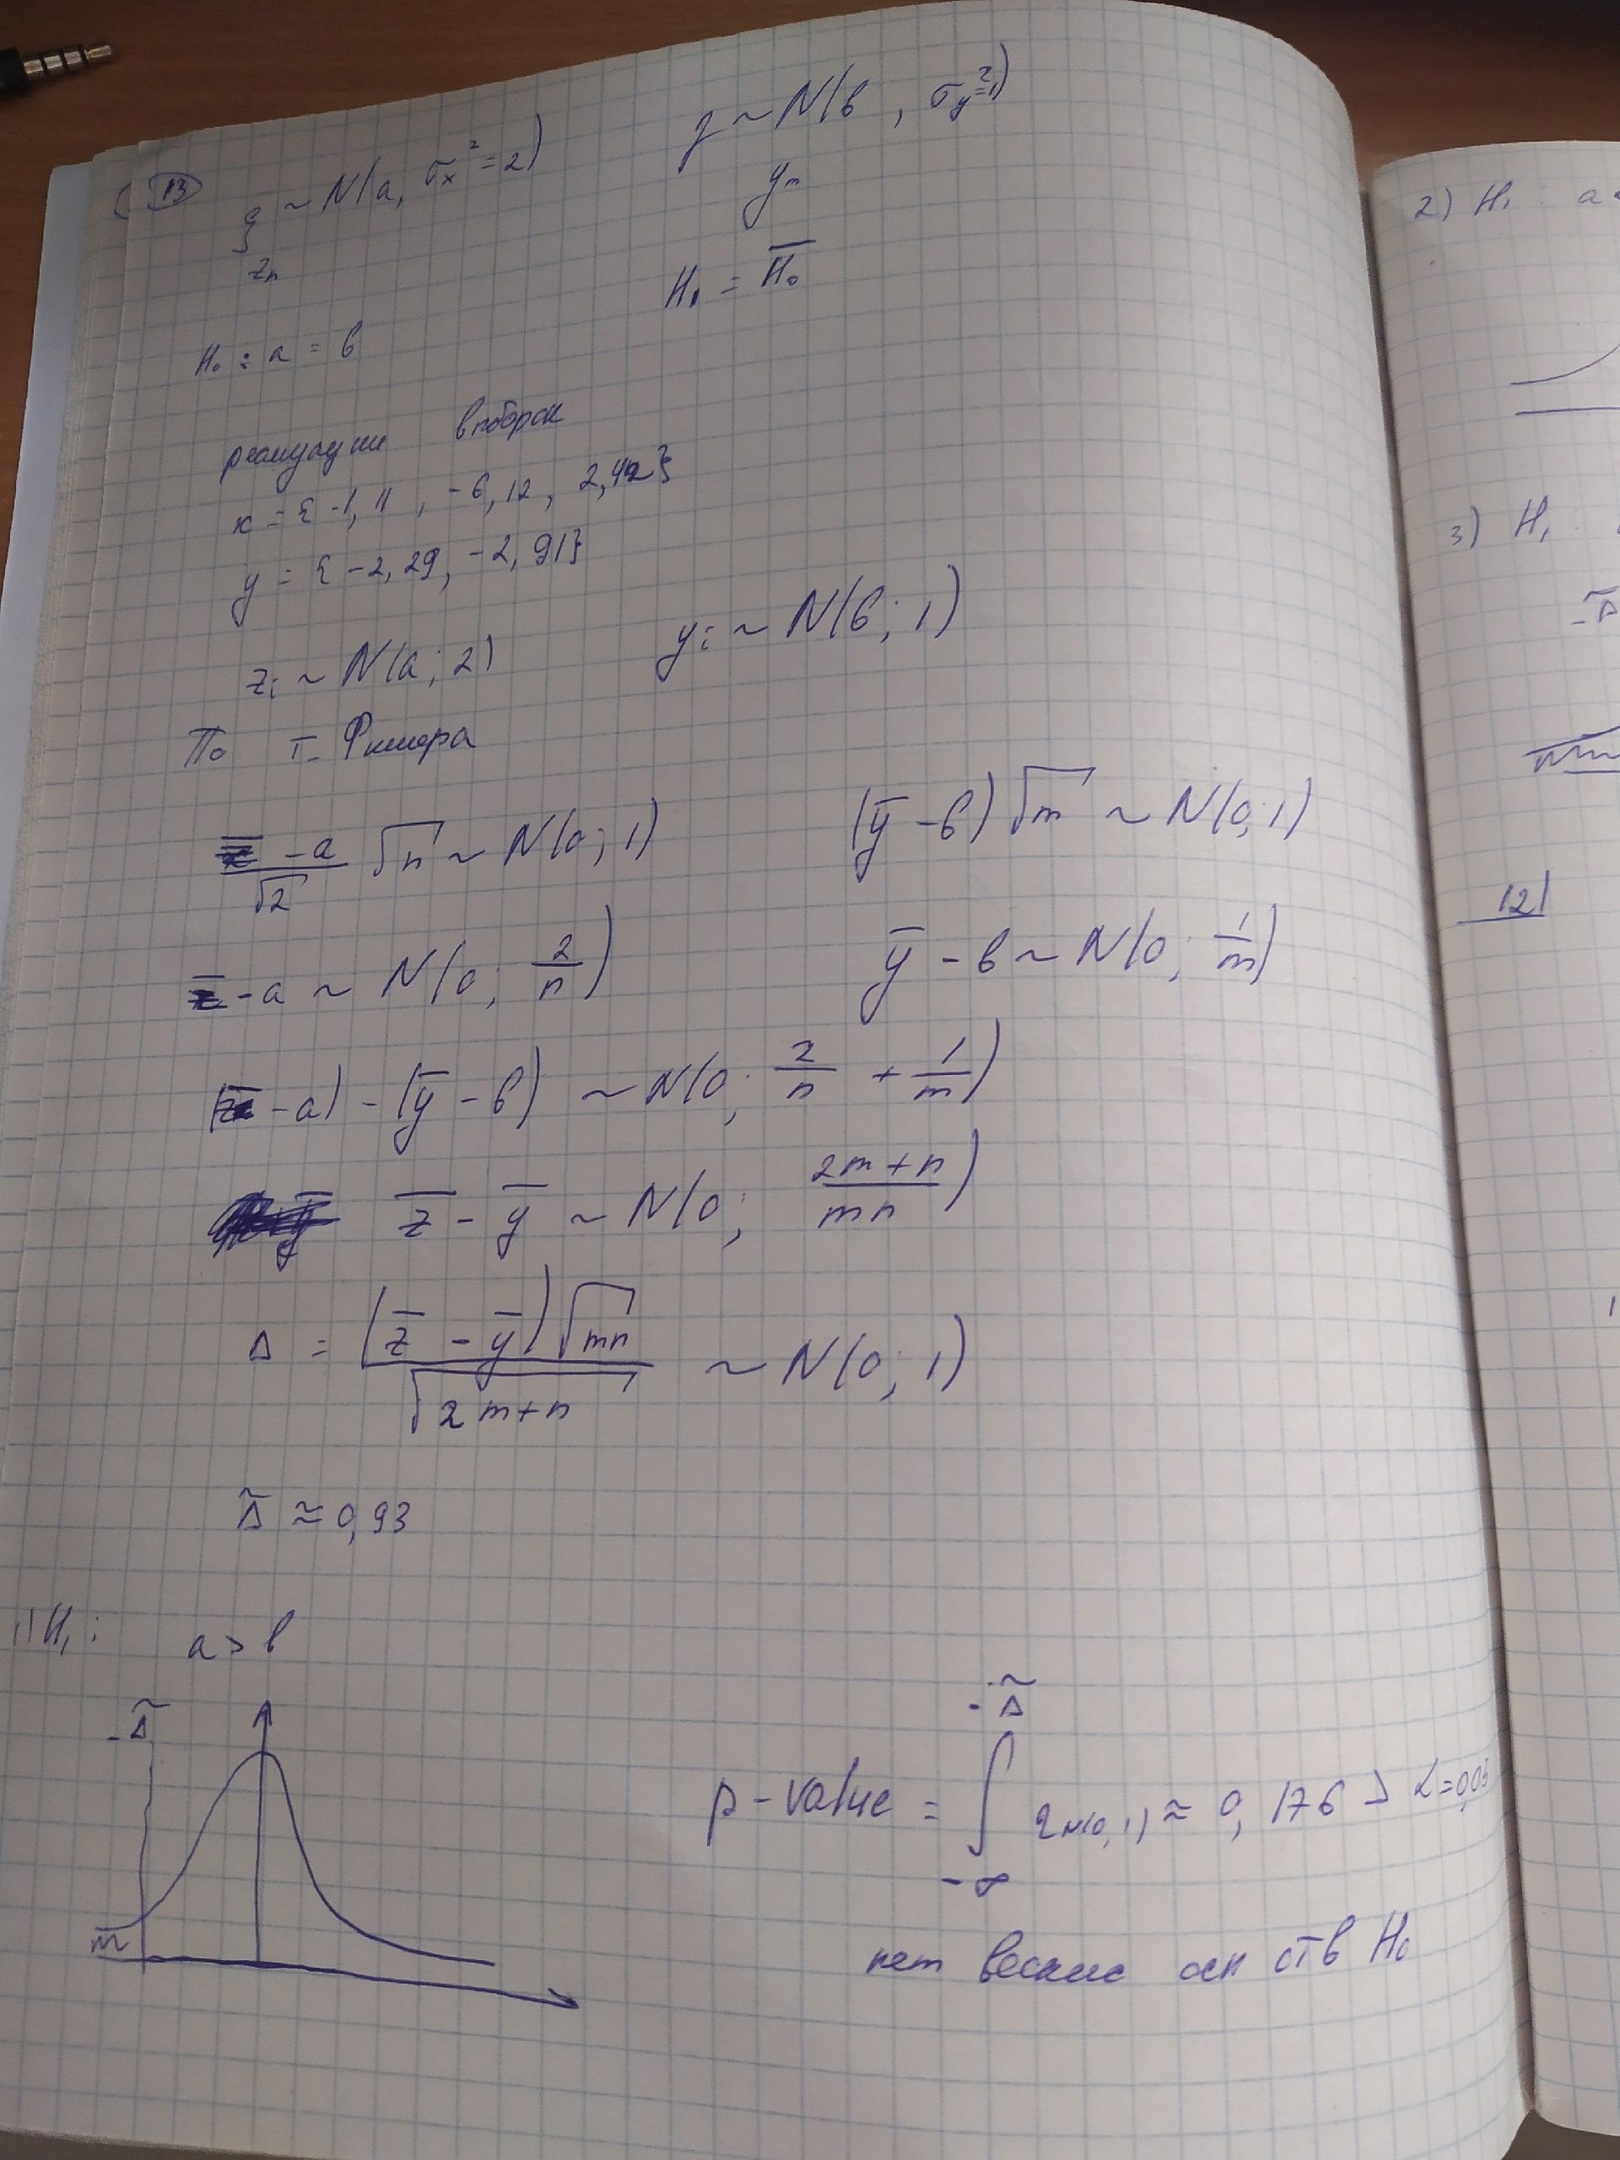 13
ξ ~ N(a, σₓ² = 2)
η ~ N(b, σ_y² = 1)
zₙ
yₘ
H₀ : a = b
H₁ = H̄₀
реализации выборок
x = {-1,11, -6,12, 2,42}
y = {-2,29, -2,91}
zᵢ ~ N(a; 2)
yᵢ ~ N(b; 1)
По т. Фишера
(z̄ - a)/√2 √n ~ N(0; 1)
(ȳ - b) √m ~ N(0, 1)
z̄ - a ~ N(0; 2/n)
ȳ - b ~ N(0; 1/m)
(z̄ - a) - (ȳ - b) ~ N(0; 2/n + 1/m)
z̄ - ȳ ~ N(0; (2m+n)/mn)
Δ = (z̄ - ȳ)√mn / √2m+n ~ N(0; 1)
Δ̃ ≈ 0,93
1) H₁ : a > b
-Δ̃
p-value = ∫_{-∞}^{-Δ̃} q_{N(0,1)} ≈ 0,176 > α = 0,05
нет веских осн отв H₀
2) H₁ a
3) H₁
-Δ̃
12)